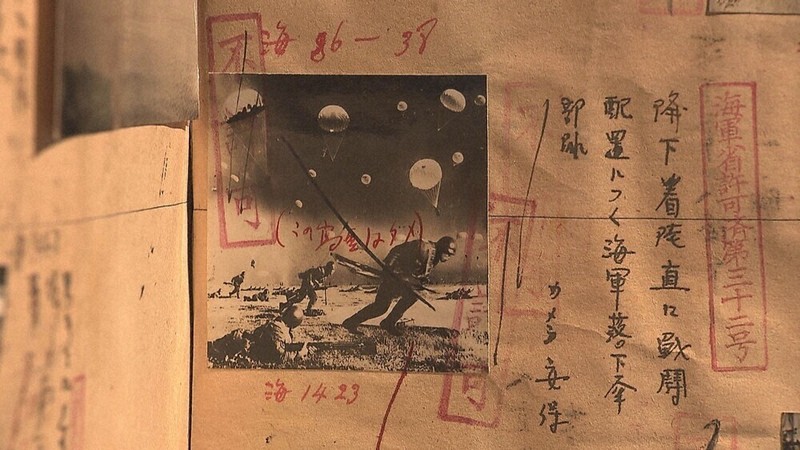 海軍省許可済第三十二号
降下着陸直に戦闘
配置につく海軍落下傘
部隊
カメラ 安保
海 86-38
不
可
(この写真はダメ)
海 1423
不
可